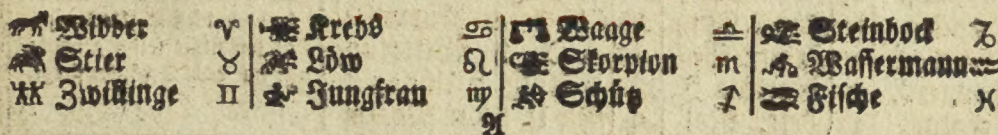 Widder ♈ Krebs ♋ Waage ♎ Steinbock ♑
Stier ♉ Löw ♌ Skorpion ♏ Wassermann ♒
Zwillinge ♊ Jungfrau ♍ Schütz ♐ Fische ♓
A